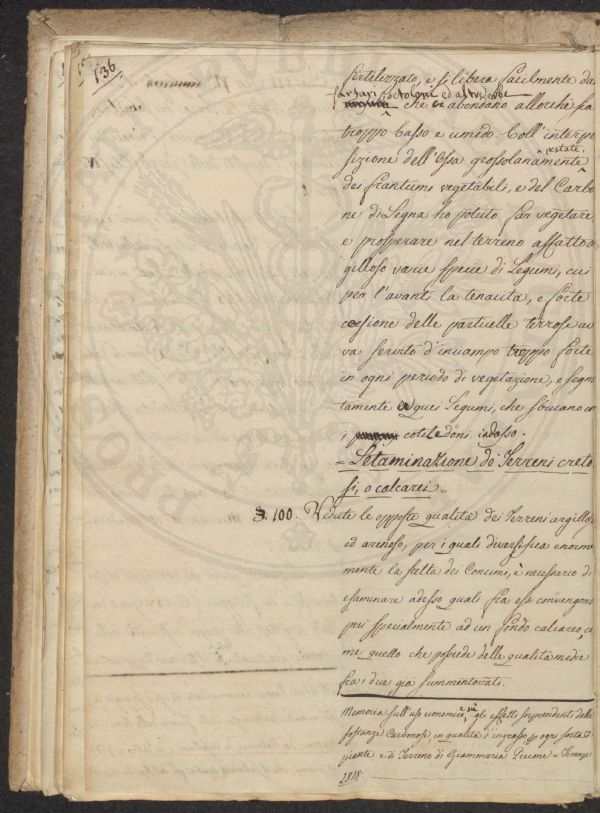 136
fertilizzato, e si libera facilmente da
che vi abondano allorchè sia
troppo basso e umido. Coll'interpo
estate,
sizione dell'Ossa grossolanamente
dei frantumi vegetabili, e del Carbo
ne di Legna ho potuto far vegetare
e prosperare nel terreno affatto ar
gilloso varie specie di Legumi, cui
per l'avanti la tenacità, e forte
coesione delle particelle terrose av
va servito d'inciampo troppo forte
in ogni periodo di vegetazione, e segna
tamente a quei Legumi, che sbucano con
i cotiledoni indosso.
= Letaminazione de' Terreni creto
si, o calcarei =
§. 100. Vedute le opposte qualità dei Terreni argilloso
ed arenoso, per i quali diversifica enorme
mente la scelta dei Concimi, è necessario di
esaminare adesso quali fra essi convengono
più specialmente ad un fondo calcareo, co
me quello che possiede delle qualità medie
fra i due già summentovati.
Memoria sull'uso economico, e su gli effetti sorprendenti delle
sostanze Carbonose, in qualità d'ingrasso p ogni sorta di
piante e di Terreno di Giammaria Piccone = Firenze
1818.